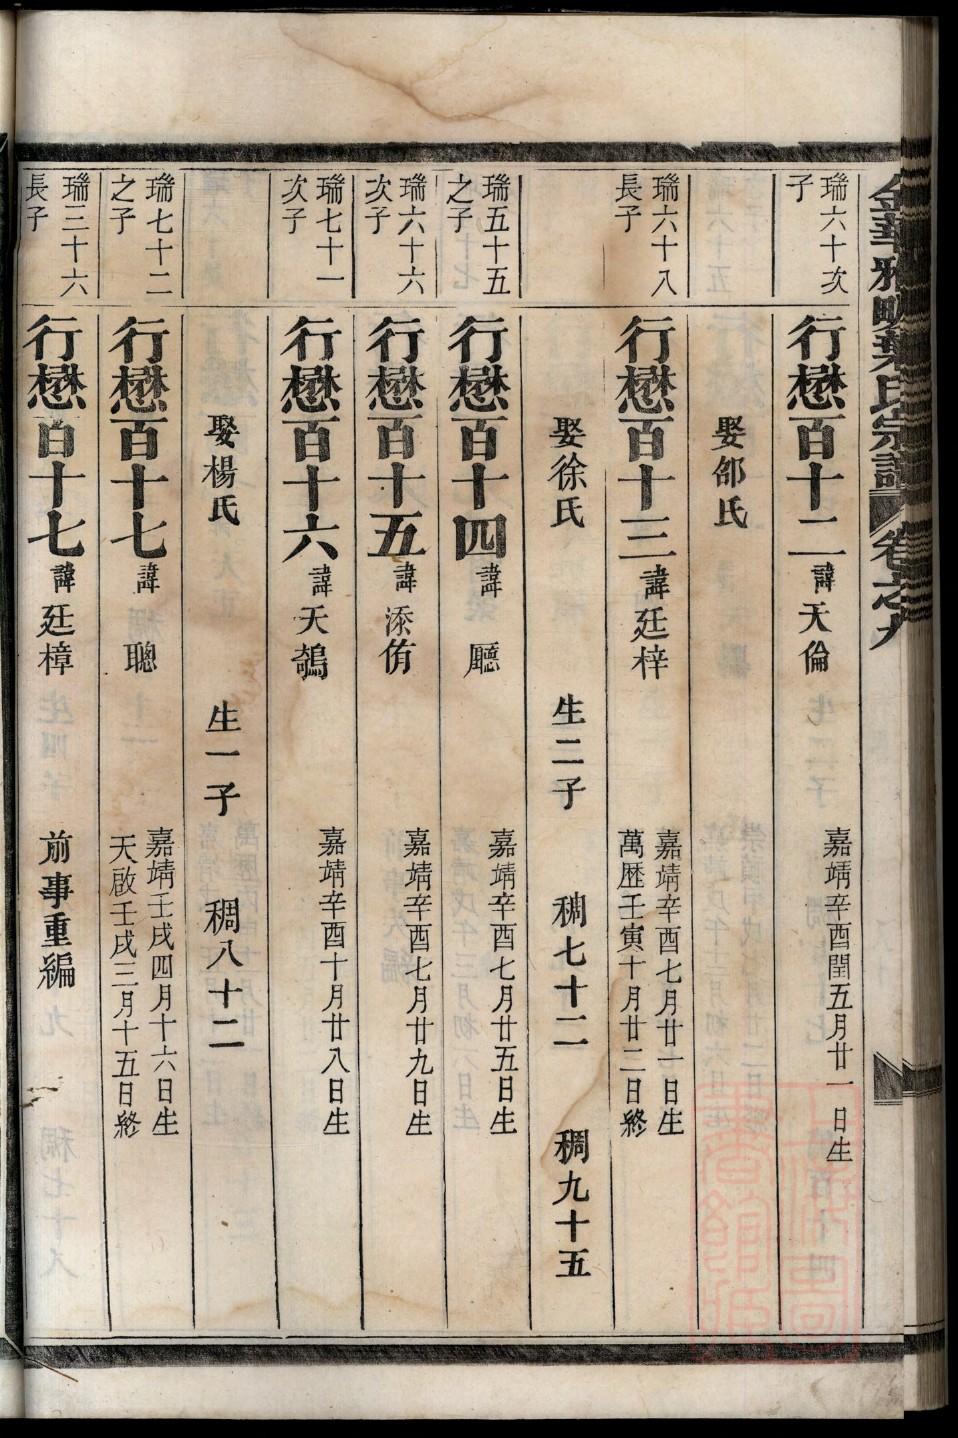 金華雅畈葉氏宗譜 卷之九
瑞六十次
子
行懋百十二 諱天倫
嘉靖辛酉閏五月廿一日生
娶邵氏
瑞六十八
長子
行懋百十三 諱廷梓
嘉靖辛酉七月廿一日生
萬歷壬寅十月廿二日終
娶徐氏 生二子 稠七十二 稠九十五
瑞五十五
之子
行懋百十四 諱廳
嘉靖辛酉七月廿五日生
瑞六十六
次子
行懋百十五 諱添侑
嘉靖辛酉七月廿九日生
瑞七十一
次子
行懋百十六 諱天鵠
嘉靖辛酉十月廿八日生
娶楊氏 生一子 稠八十二
瑞七十二
之子
行懋百十七 諱聰
嘉靖壬戌四月十六日生
天啟壬戌三月十五日終
瑞三十六
長子
行懋百十七 諱廷樟 前事重編